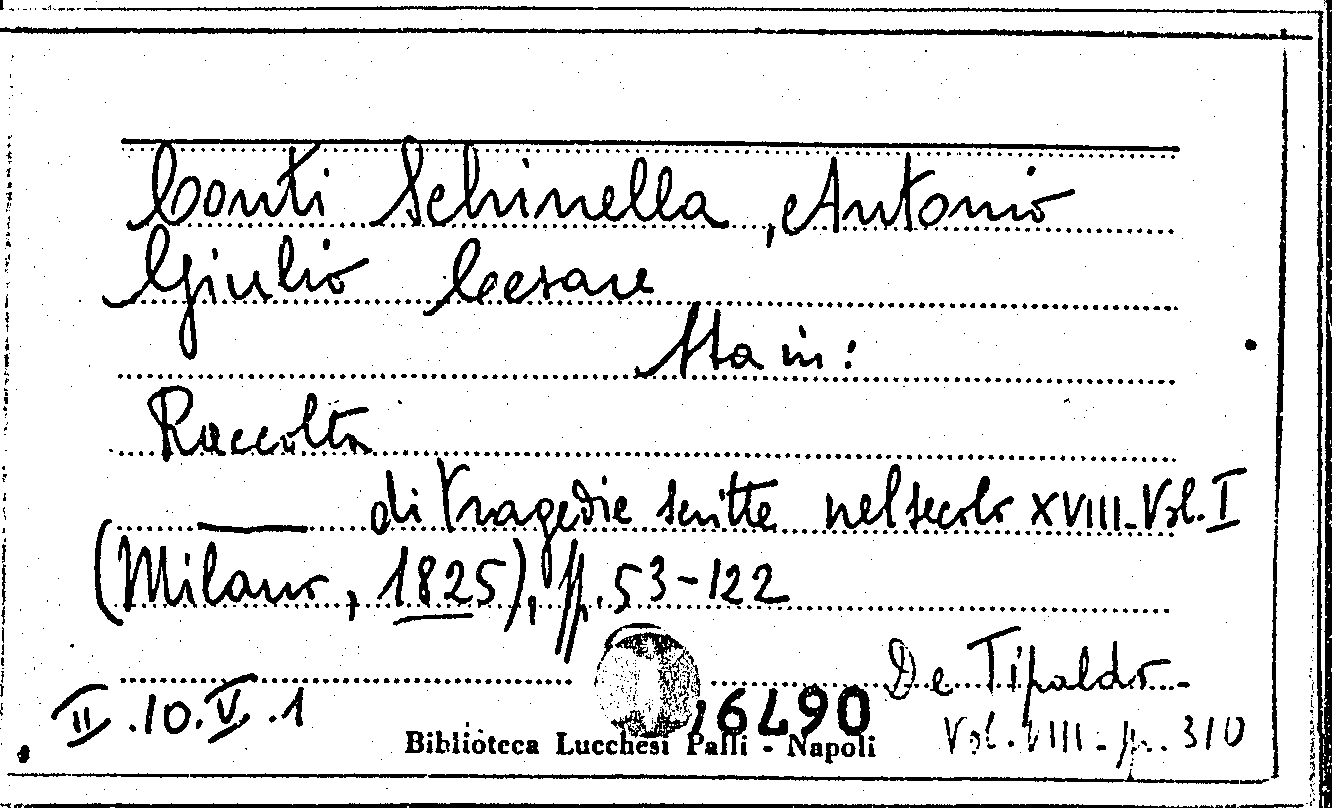 Conti Schinella, Antonio
Giulio Cesare
Sta in:
Raccolta
di tragedie scritte nel secolo XVIII-Vol. I
(Milano, 1825), pp. 53-122
De Tipaldo-
II.10.V.1
Vol. VIII - p. 310
Biblioteca Lucchesi Palli - Napoli